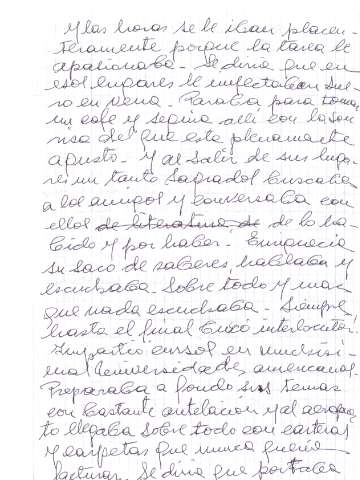 Y las horas se le iban placen-
teramente porque la tarea le
apasionaba - Se diría que en
esos lugares le inyectaban sue-
ro en vena - Paraba para tomar
un café y seguía allí con la son-
risa del que está plenamente
a gusto - Y al salir de sus luga-
res un tanto sagrados buscaba
a los amigos y conversaba con
ellos de literatura, de de lo ha-
bido y por haber - Enriquecía
su saco de saberes, hablaba y
escuchaba - Sobre todo y más
que nada escuchaba - Siempre,
hasta el final buscó interlocutor.
Impartió cursos en muchísi-
mas Universidades americanas.
Preparaba a fondo sus temas
con bastante antelación y al aeropuer-
to llegaba sobre todo con carteras
y carpetas que nunca quería
facturar. Se diría que portaba